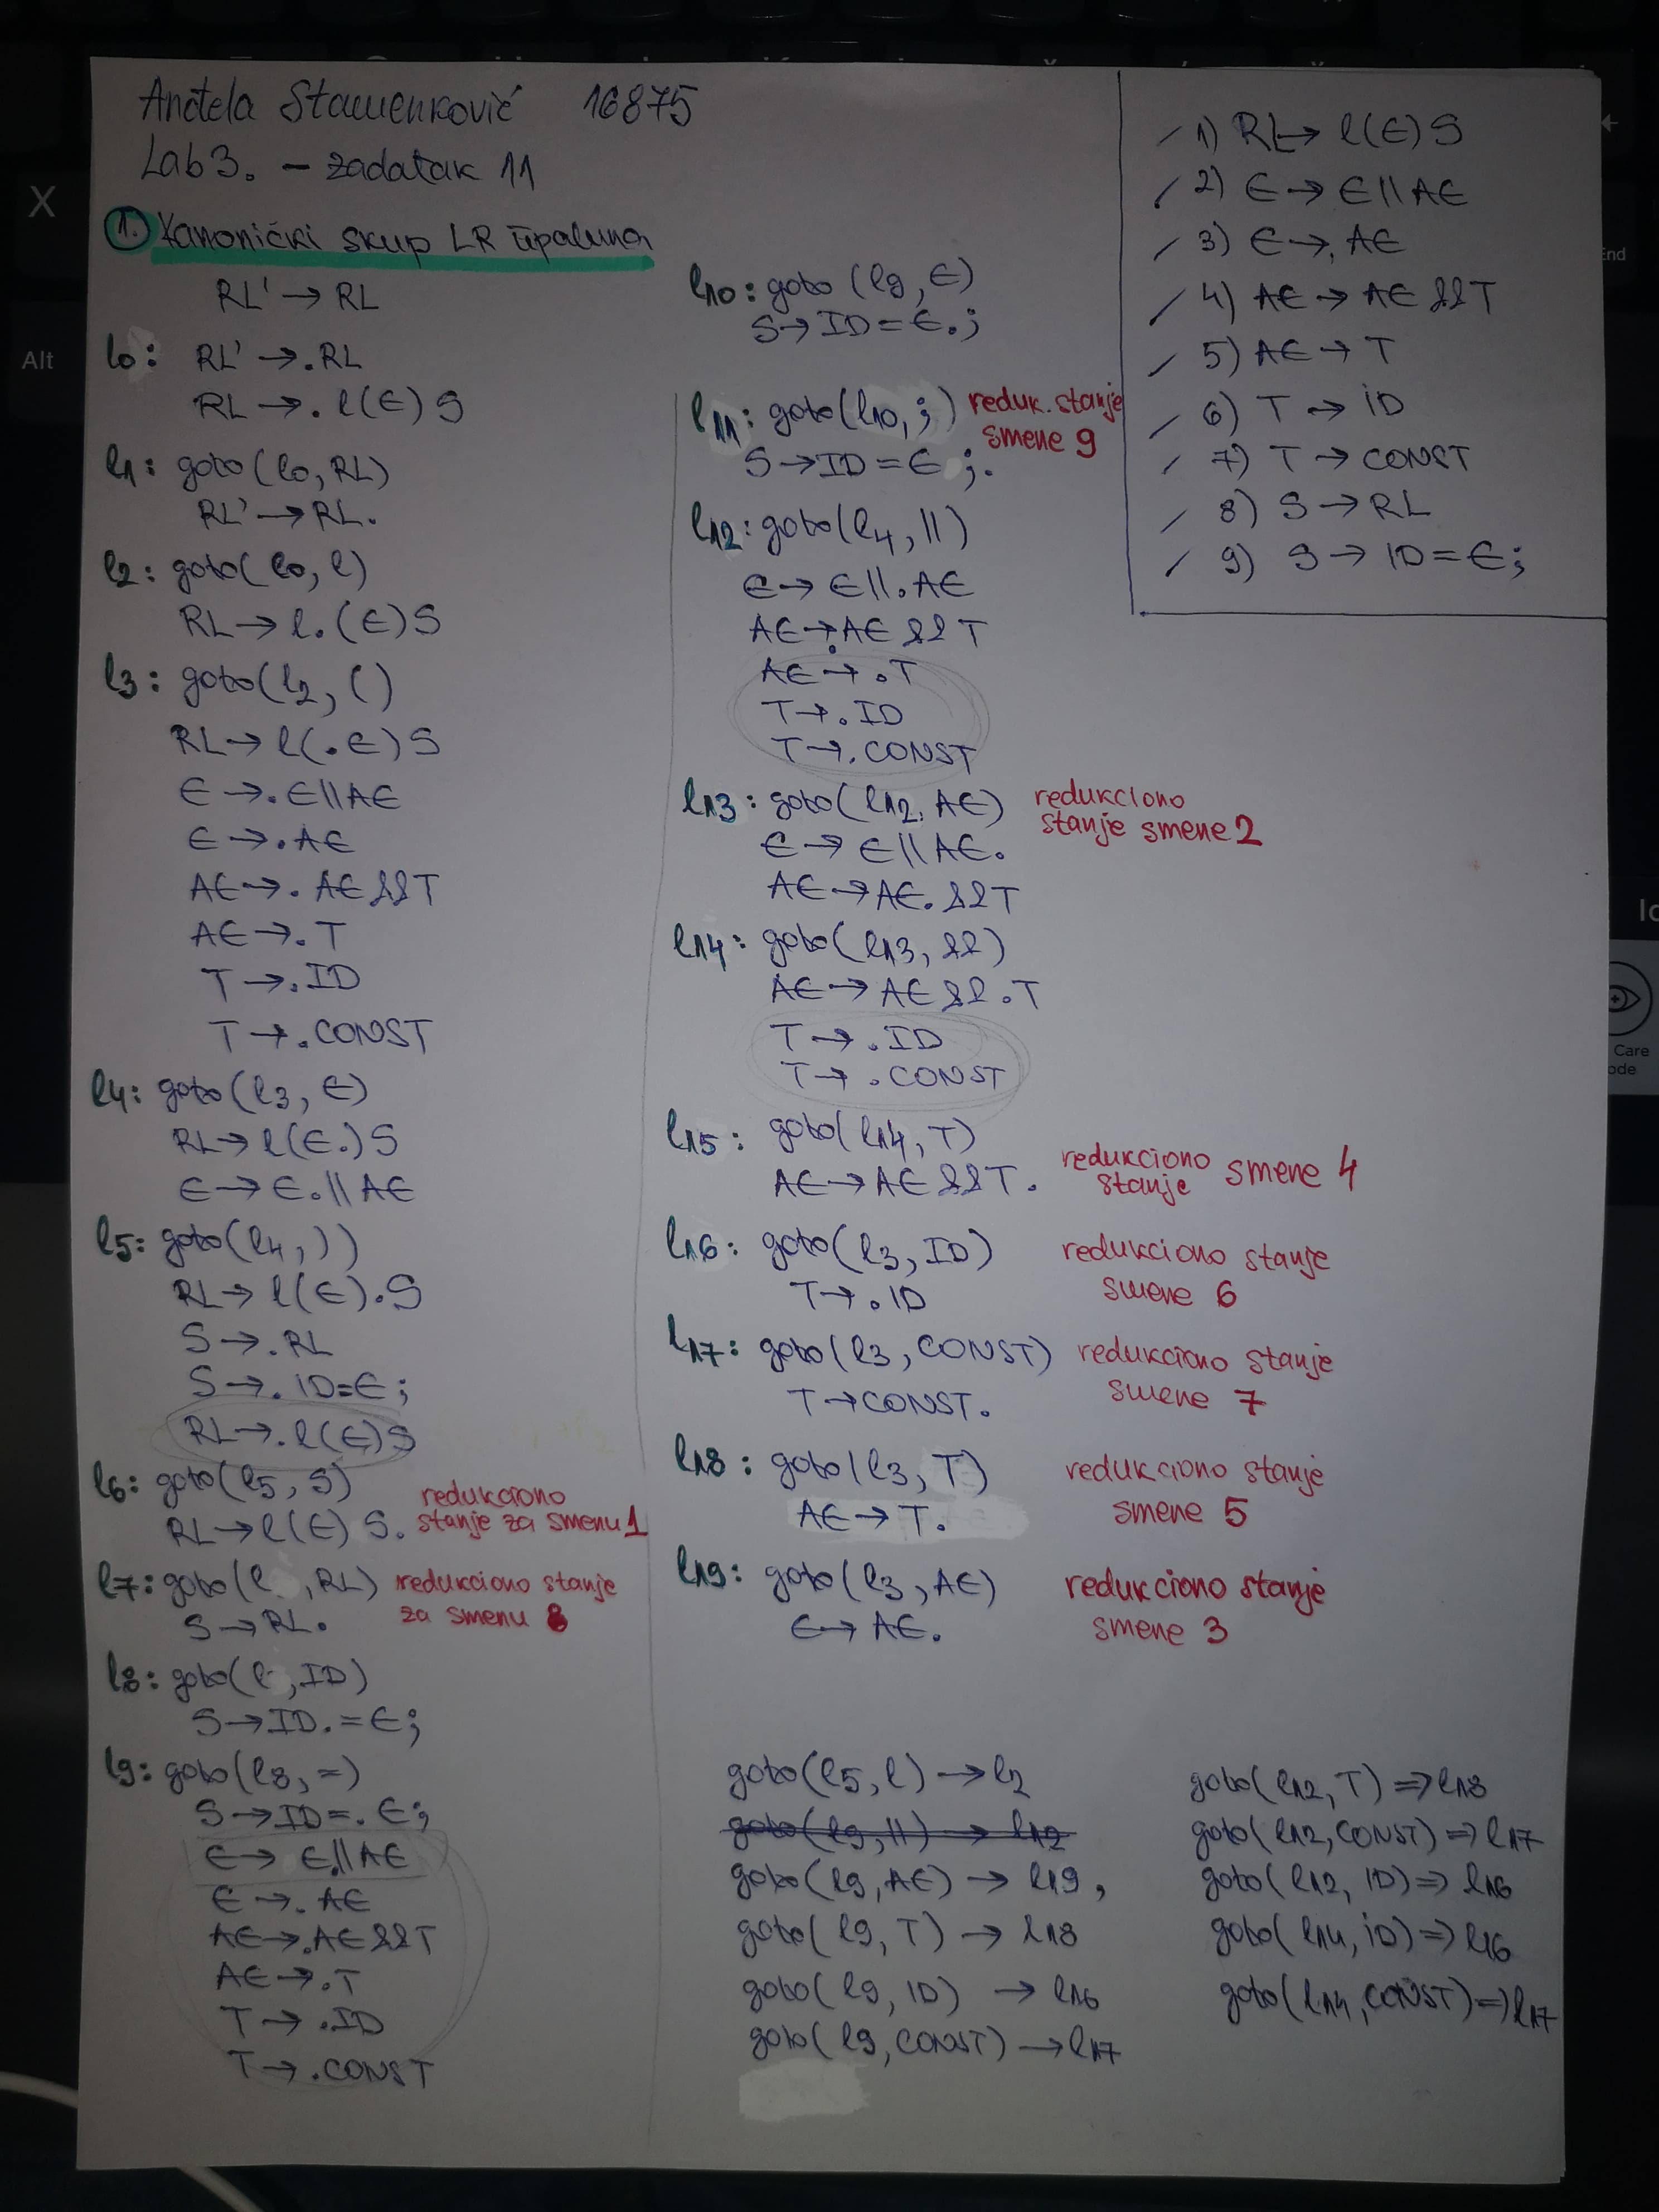 Anđela Stamenković 16875
Lab 3. – zadatak 11
1. Kanonički skup LR
RL' → RL
l0: RL' → .RL
RL → . l(E) S
l1: goto(l0, RL)
RL' → RL.
l2: goto(l0, l)
RL → l. (E) S
l3: goto(l2, ()
RL → l(.E) S
E → . E || AE
E → . AE
AE → . AE && T
AE → . T
T → . ID
T → . CONST
l4: goto(l3, E)
RL → l(E.) S
E → E. || AE
l5: goto(l4, ))
RL → l(E) . S
S → . RL
S → . ID = E ;
RL → . l(E) S
l6: goto(l5, S) redukciono
RL → l(E) S. stanje za smenu 1
l7: goto(l , RL) redukciono stanje
S → RL. za smenu 8
l8: goto(l , ID)
S → ID. = E;
l9: goto(l8, =)
S → ID = . E;
E → E.|| AE
E → . AE
AE → . AE && T
AE → . T
T → . ID
T → . CONST
l10: goto (l9, E)
S → ID = E. ;
l11: goto(l10, ;) reduk. stanje
smene 9
S → ID = E ; .
l12: goto(l4, ||)
E → E || . AE
AE → . AE && T
AE → . T
T → . ID
T → . CONST
l13: goto(l12, AE) redukciono
stanje smene 2
E → E || AE.
AE → AE. && T
l14: goto(l13, &&)
AE → AE && . T
T → . ID
T → . CONST
l15: goto(l14, T)
AE → AE && T . redukciono stanje smene 4
l16: goto(l3, ID) redukciono stanje
T → . ID smene 6
l17: goto(l3, CONST) redukciono stanje
T → CONST. smene 7
l18: goto(l3, T) redukciono stanje
AE → T. smene 5
l19: goto(l3, AE) redukciono stanje
E → AE. smene 3
goto(l5, l) → l2
goto(l9, ||) → l12
goto(l9, AE) → l19,
goto(l9, T) → l18
goto(l9, ID) → l16
goto(l9, CONST) → l17
goto(l12, T) => l18
goto(l12, CONST) => l17
goto(l12, ID) => l16
goto(l14, iD) => l16
goto(l14, CONST) => l17
1) RL → l(E) S
2) E → E || AE
3) E → AE
4) AE → AE && T
5) AE → T
6) T → iD
7) T → CONST
8) S → RL
9) S → ID = E;
X
Alt
End
Care